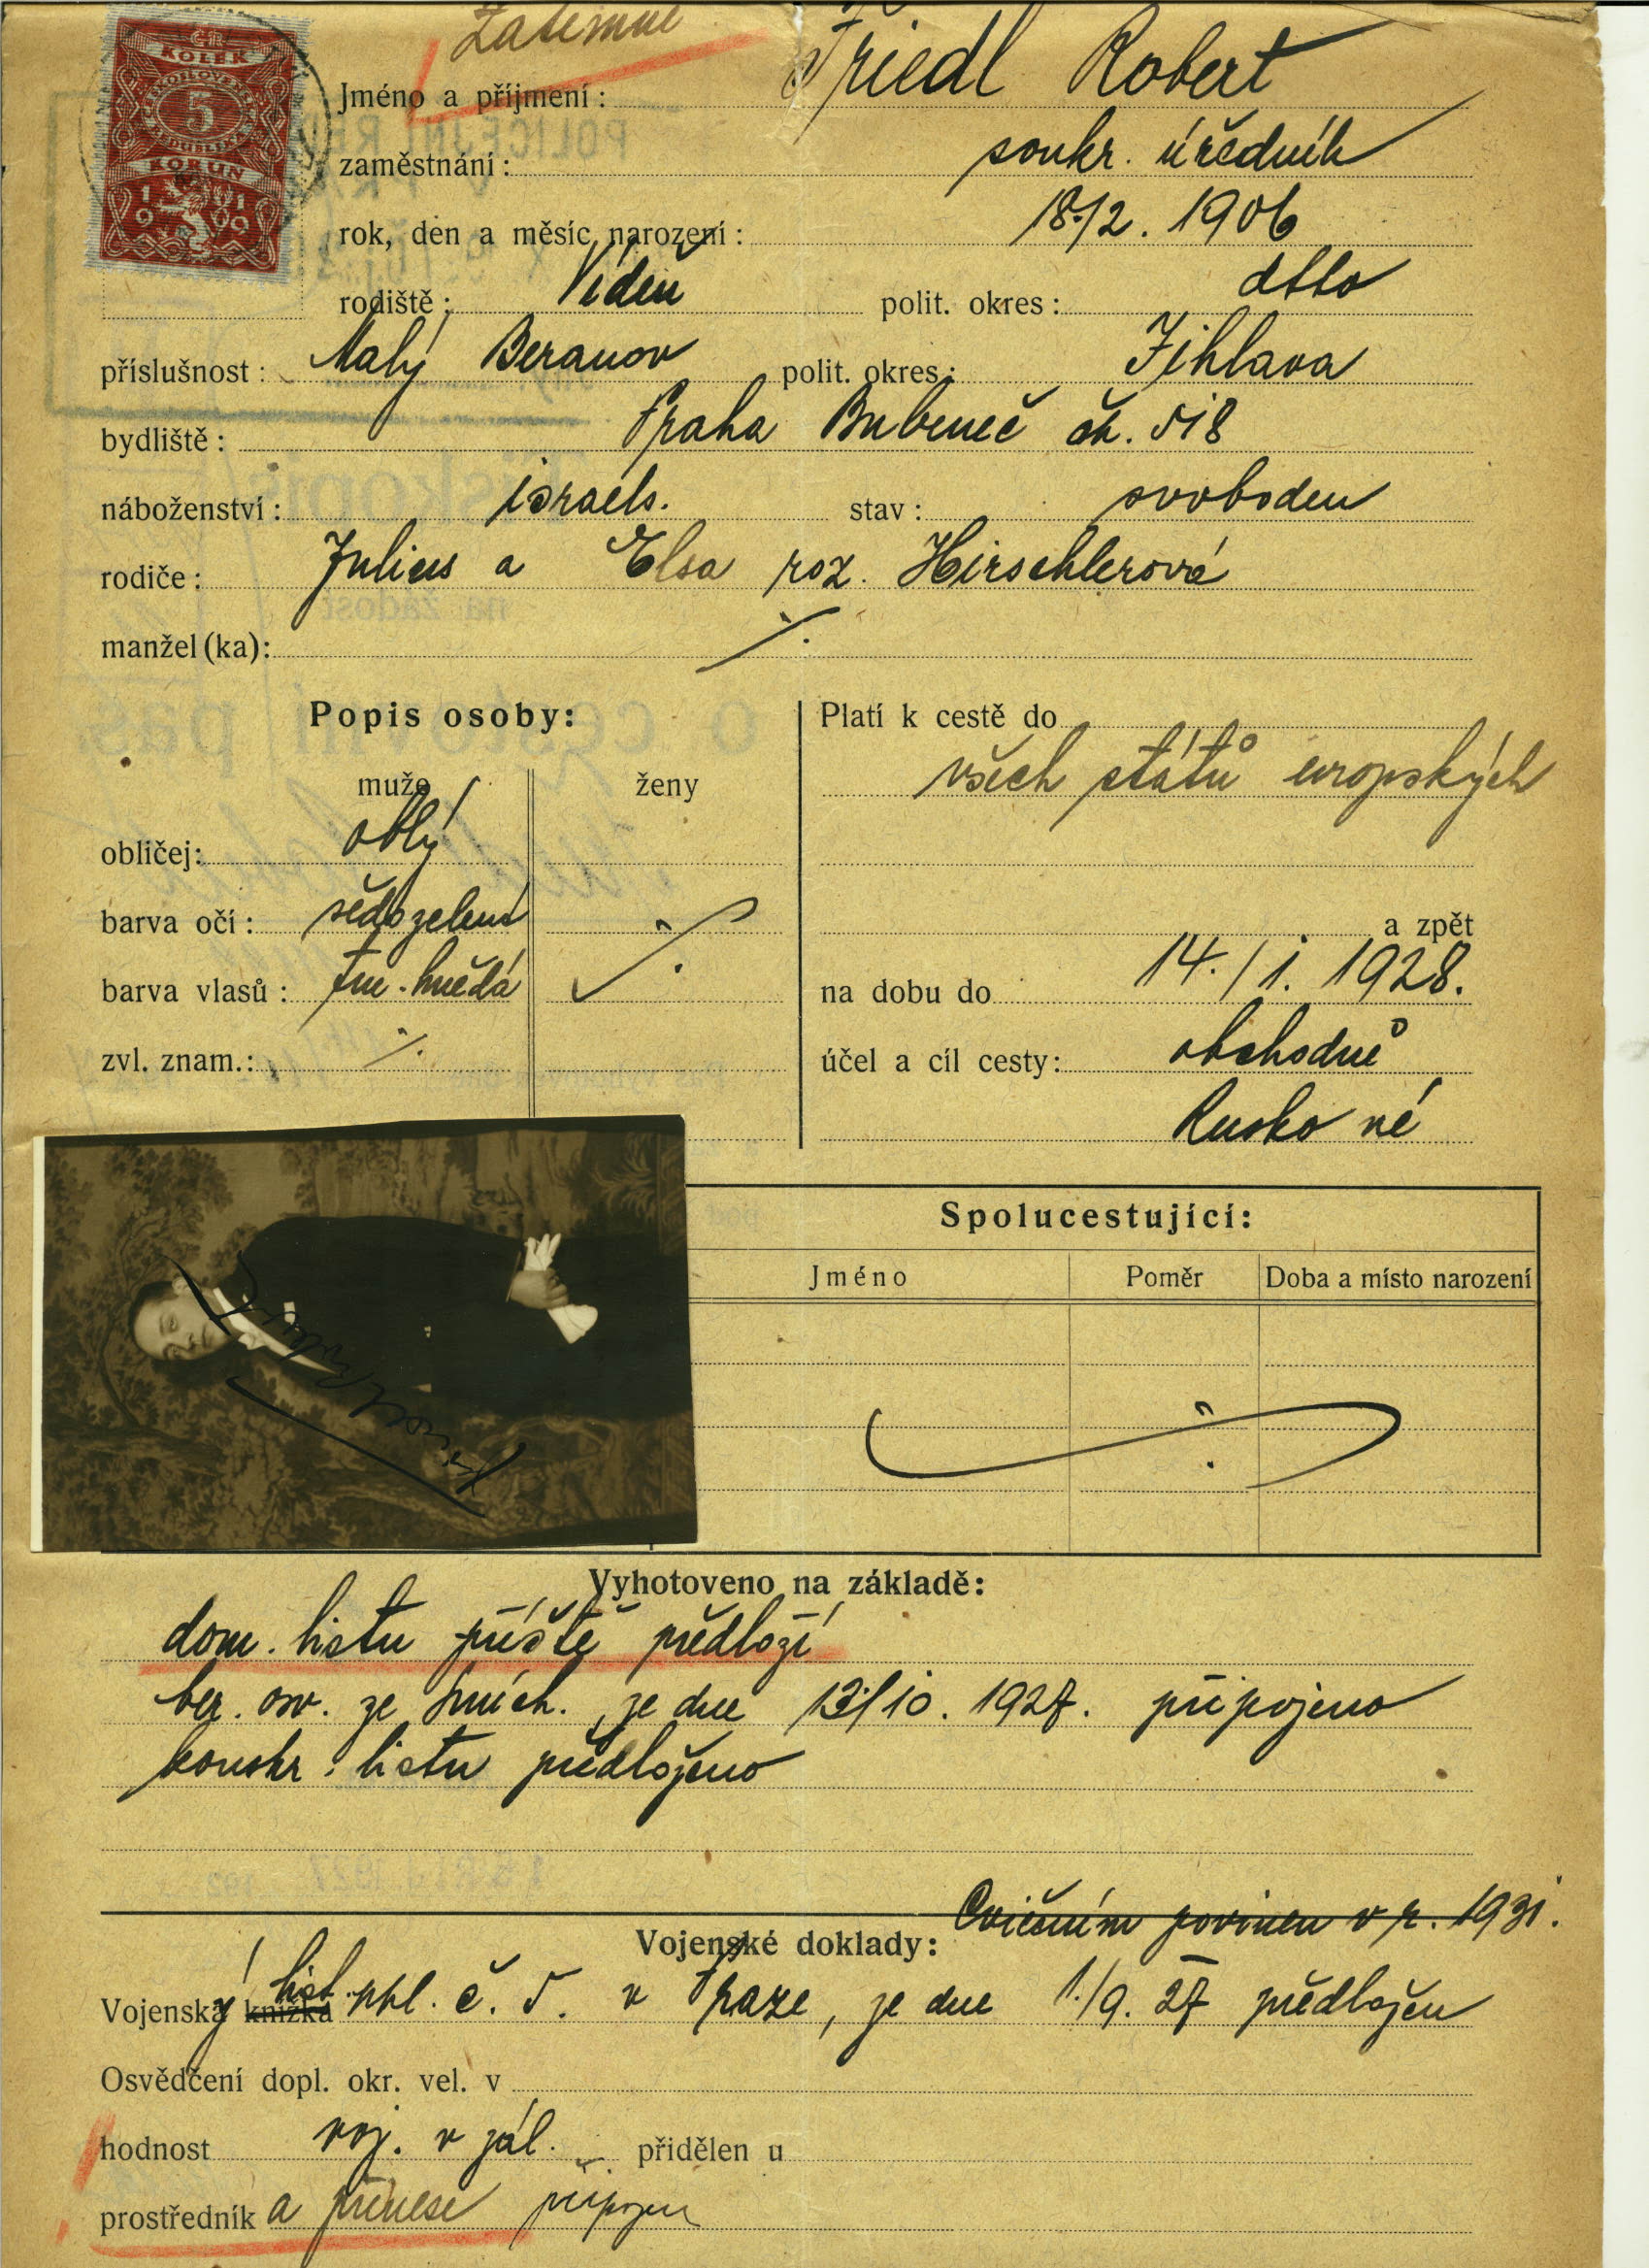 Zatemně
Friedl Robert
Jméno a příjmení:
KOLEK
5
KORUN
1919
zaměstnání: soukr. úředník
rok, den a měsíc narození: 18/2. 1906
rodiště: Vídeň polit. okres: dtto
příslušnost: Malý Beranov polit. okres: Jihlava
bydliště: Praha Bubeneč čk. 518
náboženství: israels. stav: svoboden
rodiče: Julius a Elsa roz. Hirschlerová
manžel(ka): ⁒
Popis osoby:
muže ženy
obličej: oblý
barva očí: šědozelená
barva vlasů: tm. hnědá
zvl. znam.: ⁒
Platí k cestě do
všech států evropských
a zpět
na dobu do 14./1. 1928.
účel a cíl cesty: obchodně
Rusko né
Friedl Robert
Spolucestující:
Jméno Poměr Doba a místo narození
Vyhotoveno na základě:
dom. listu příště předloží
ber. osv. ze Smích. je dne 13/10. 1927. připojeno
konskr. listu předloženo
Cvičením povinen v r. 1931.
Vojenské doklady:
Vojenský list knížka ppl. č. 5. v Praze, je dne 1./9. 27 předložen
Osvědčení dopl. okr. vel. v
hodnost voj. v zál. přidělen u
prostředník a přinese připojen